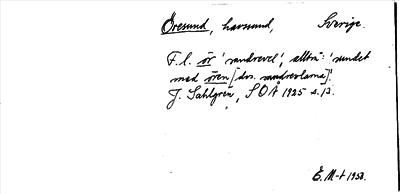 Öresund, havssund, Sverige.
F.l. ör 'sandrevel', alltså: 'sundet
med ören [dvs. sandrevlarna]'.
J. Sahlgren, SOÅ 1925 s. 13.
E. M-t 1958.